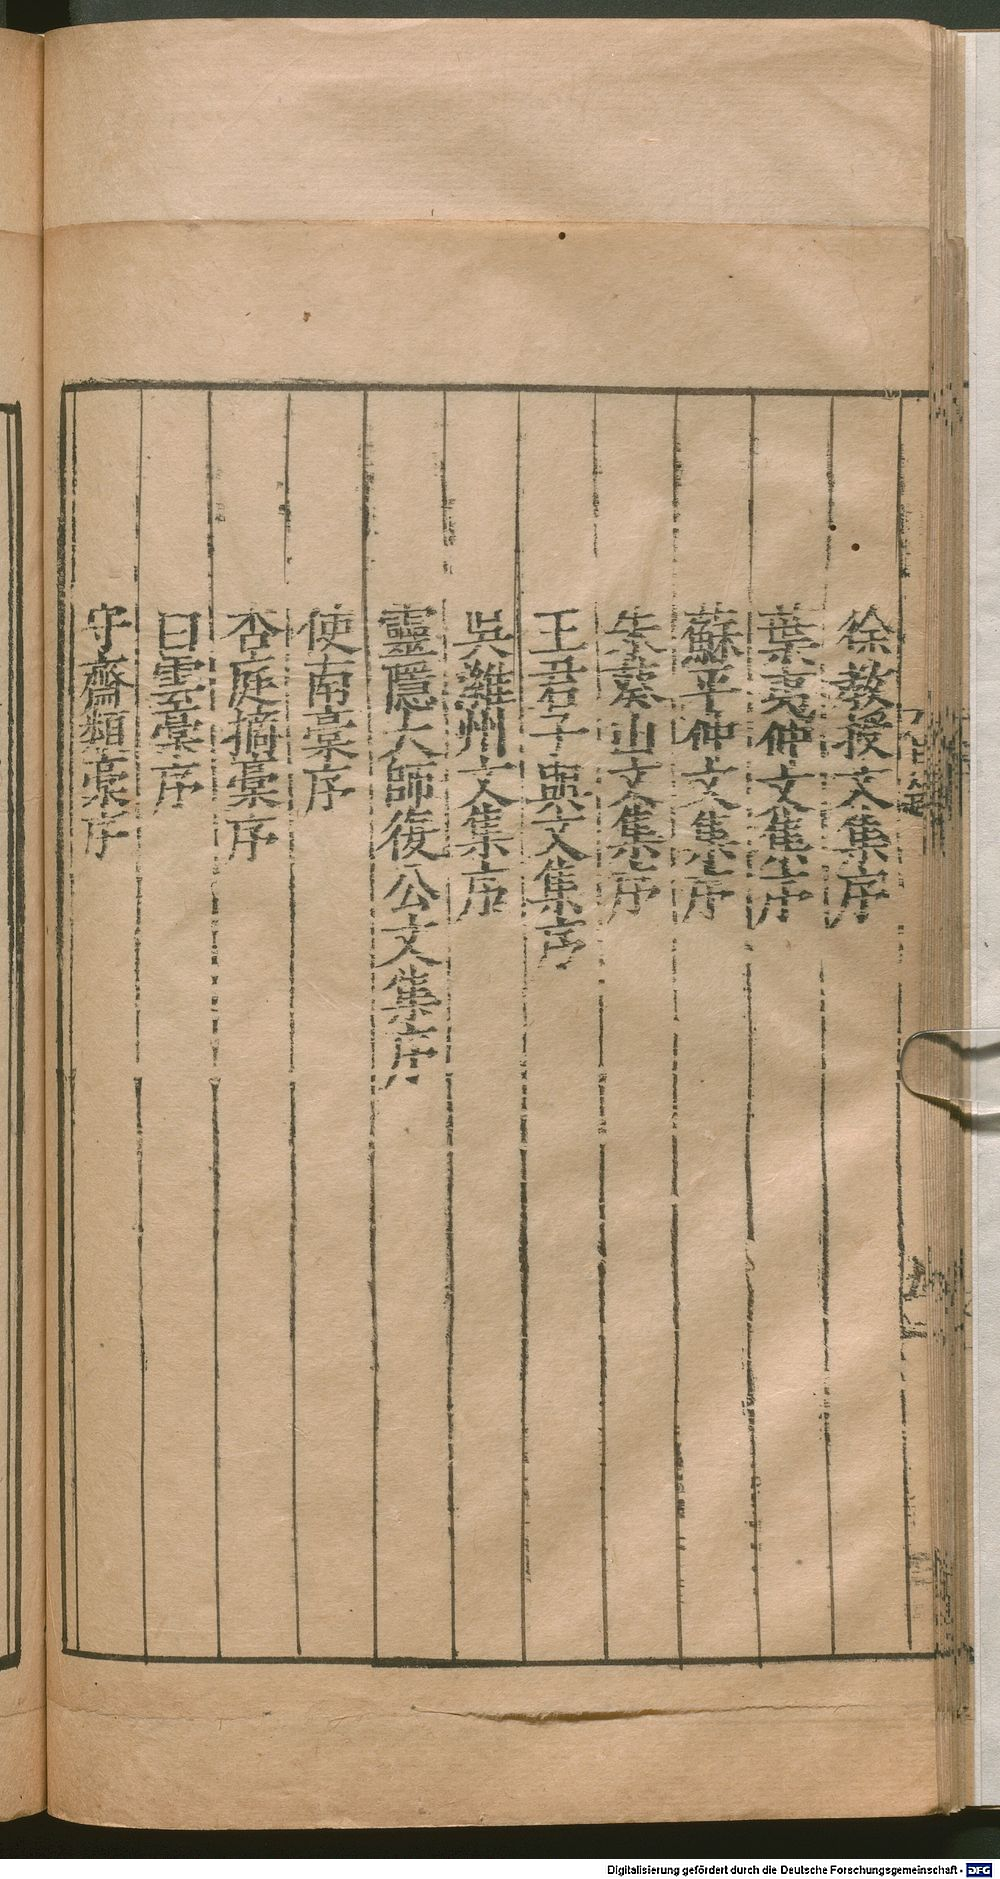 徐教授文集序
葉夷仲文集序
蘇平仲文集序
朱葵山文集序
王君子與文集序
吳濰州文集序
靈隱大師復公文集序
使南稾序
杏庭摘稾序
白雲稾序
守齋類稾序
Digitalisierung gefördert durch die Deutsche Forschungsgemeinschaft - DFG